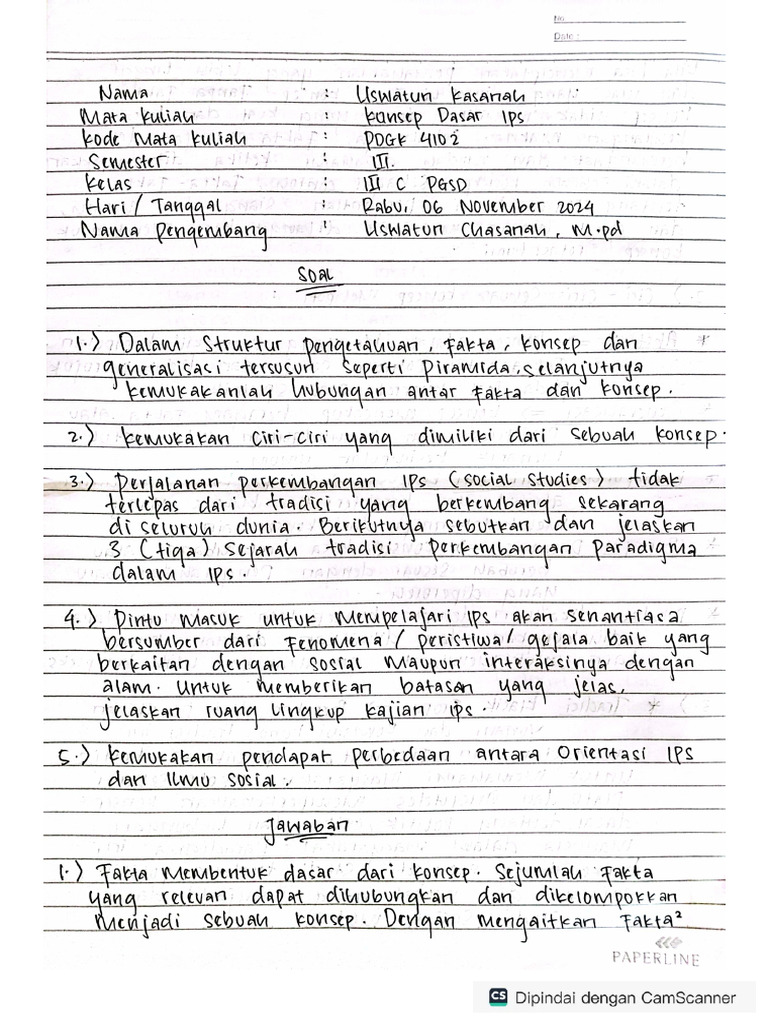 No.
Date :
Nama : Uswatun Kasanah
Mata Kuliah : Konsep Dasar IPS
Kode Mata Kuliah : PDGK 4102
Semester : III
Kelas : III C PGSD
Hari / Tanggal : Rabu, 06 November 2024
Nama Pengembang : Uswatun Chasanah, M.pd
Soal
1.) Dalam Struktur pengetahuan, Fakta, konsep dan
generalisasi tersusun seperti piramida, selanjutnya
kemukakanlah hubungan antar Fakta dan konsep.
2.) Kemukakan Ciri-Ciri yang dimiliki dari sebuah konsep.
3.) Perjalanan perkembangan IPS (social studies) tidak
terlepas dari tradisi yang berkembang sekarang
di seluruh dunia. Berikutnya sebutkan dan jelaskan
3 (tiga) Sejarah tradisi perkembangan Paradigma
dalam IPS.
4.) Pintu Masuk untuk Mempelajari IPS akan senantiasa
bersumber dari Fenomena / peristiwa / gejala baik yang
berkaitan dengan sosial Maupun interaksinya dengan
alam. Untuk memberikan batasan yang jelas,
jelaskan ruang lingkup kajian IPS.
5.) Kemukakan pendapat perbedaan antara Orientasi IPS
dan Ilmu Sosial.
Jawaban
1.) Fakta Membentuk dasar dari konsep. Sejumlah Fakta
yang relevan dapat dihubungkan dan dikelompokkan
Menjadi sebuah konsep. Dengan mengaitkan Fakta²
PAPERLINE
CS Dipindai dengan CamScanner